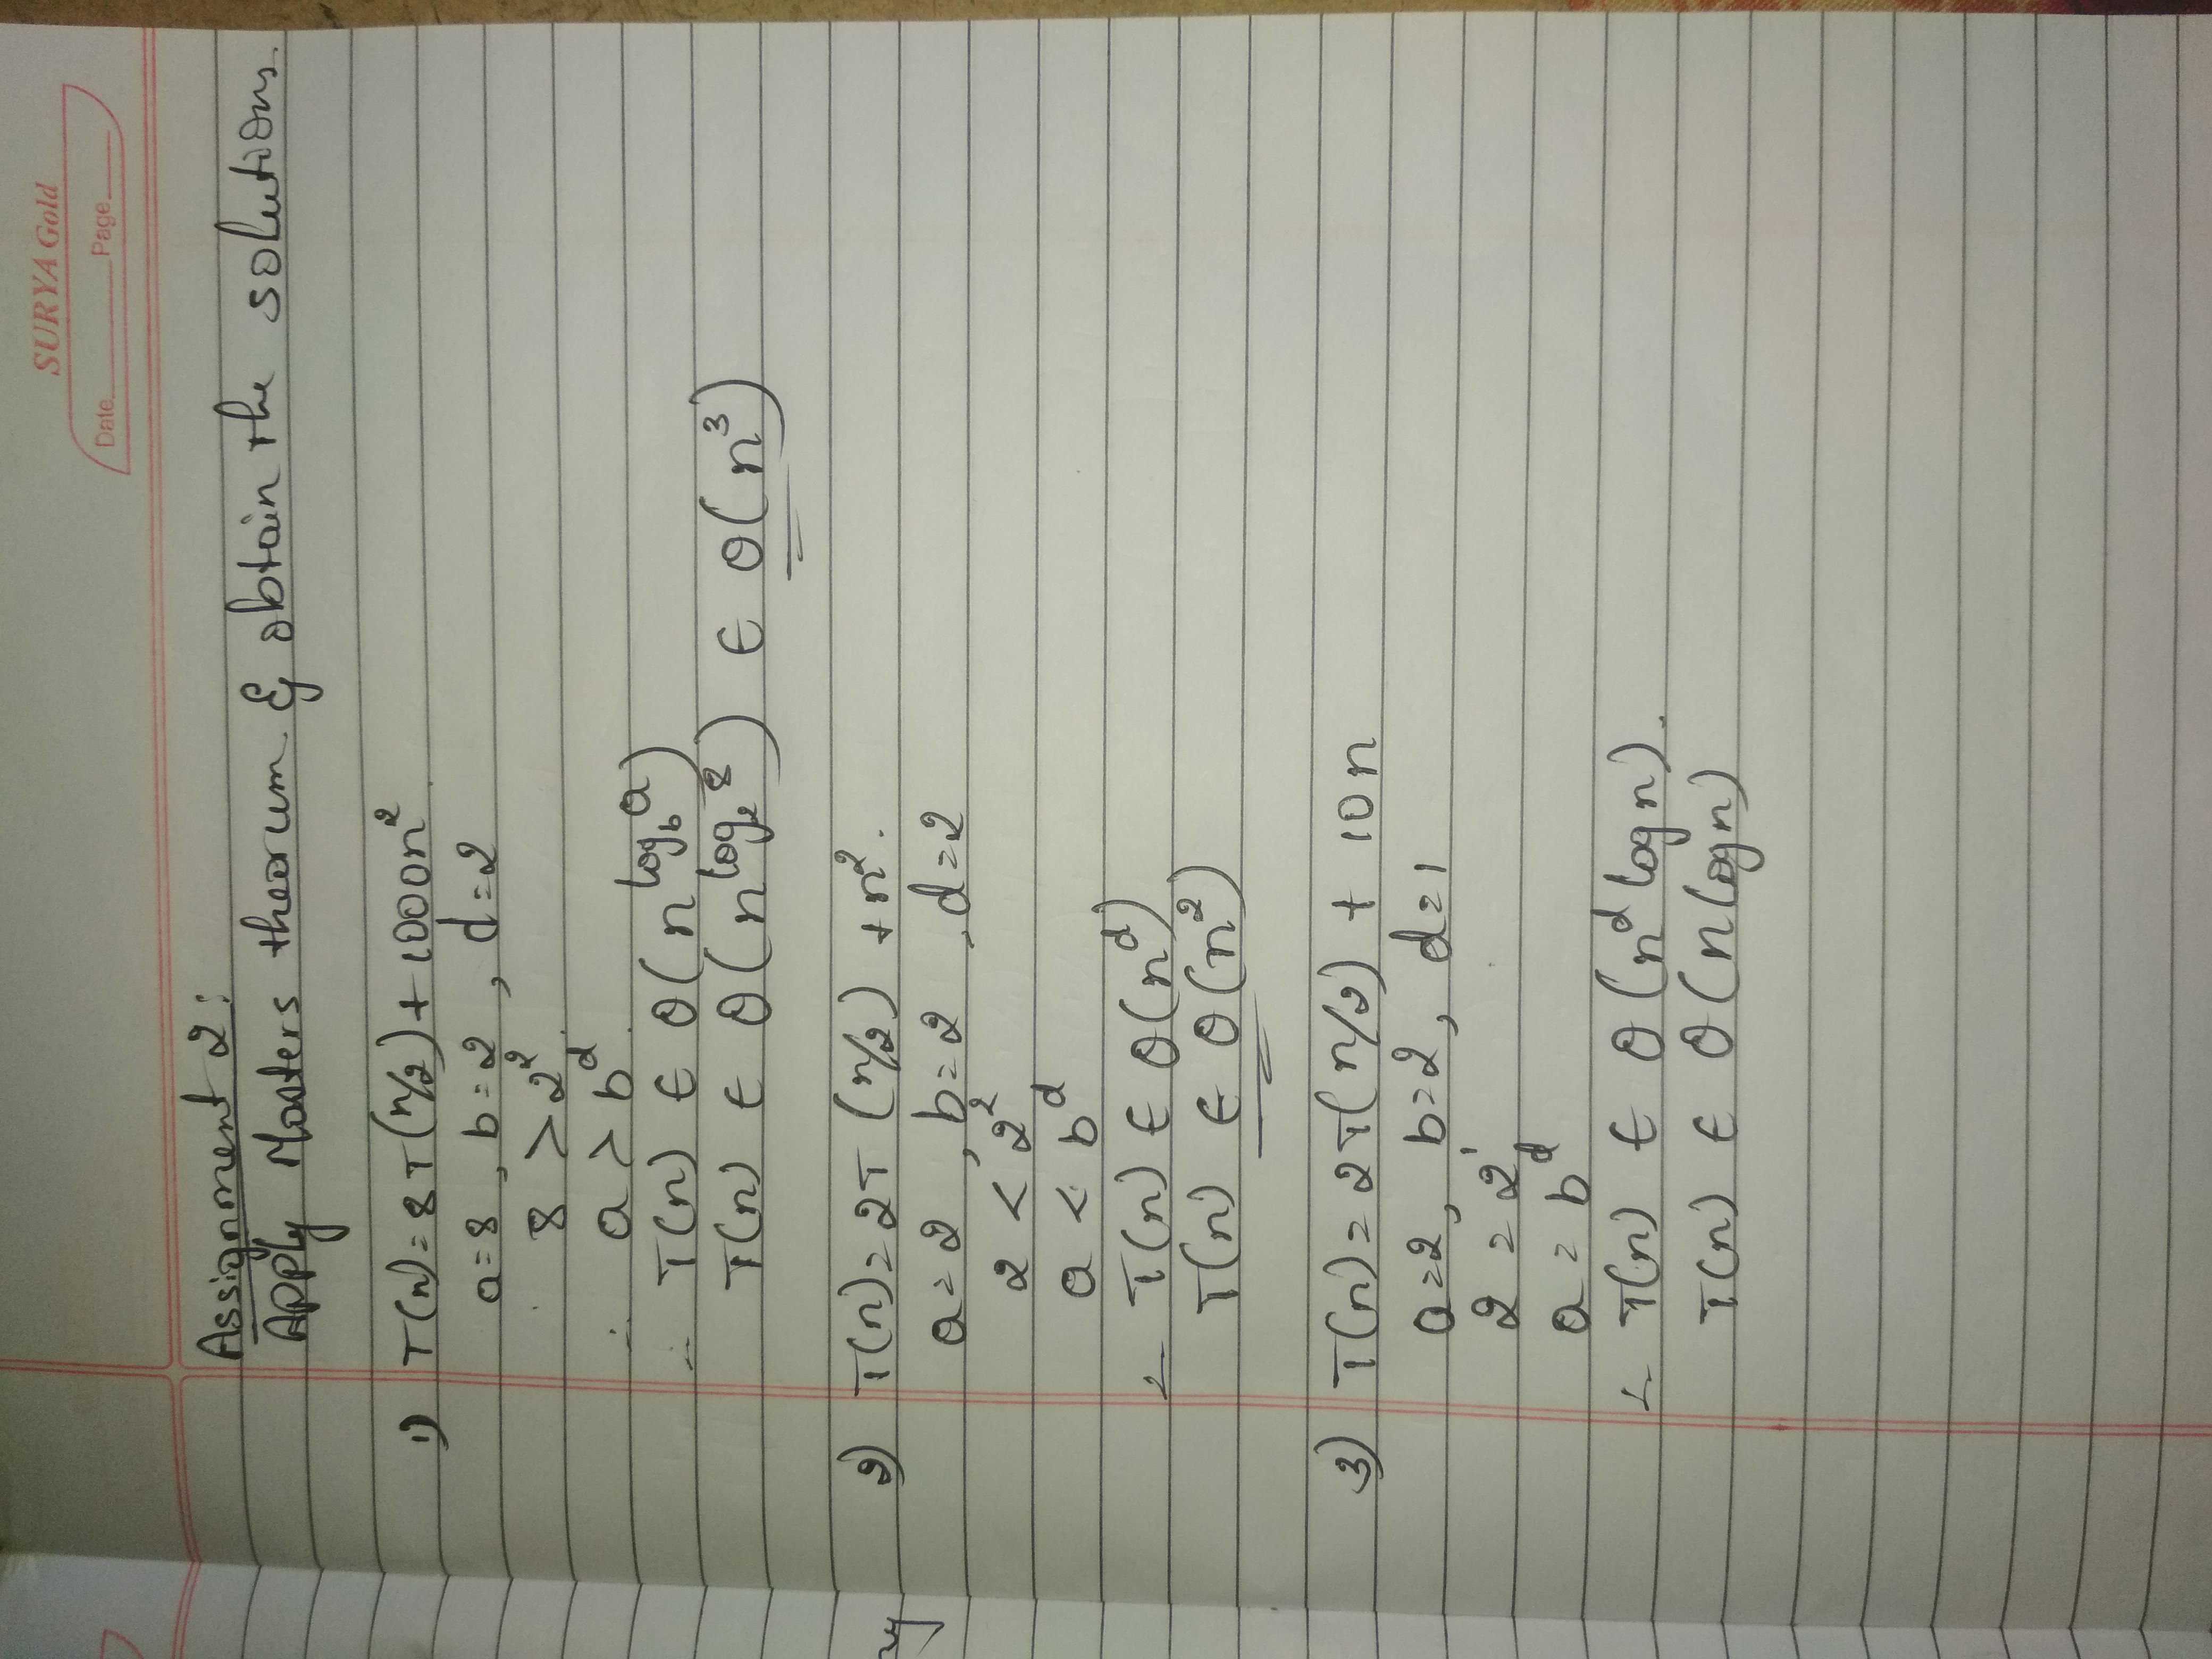 SURYA Gold
Date Page
Assignment 2:
Apply Masters theorum & obtain the solutions.
1) T(n) = 8T(n/2) + 1000n²
a=8, b=2, d=2
8 > 2²
a > b^d
∴ T(n) ∈ Θ(n^log_b a)
T(n) ∈ Θ(n^log_2 8) ∈ Θ(n³)
2) T(n) = 2T(n/2) + n².
a=2, b=2, d=2
2 < 2²
a < b^d
T(n) ∈ Θ(n^d)
T(n) ∈ Θ(n²)
3) T(n) = 2T(n/2) + 10n
a=2, b=2, d=1
2 = 2¹
a = b^d
T(n) ∈ Θ(n^d log n).
T(n) ∈ Θ(n log n)